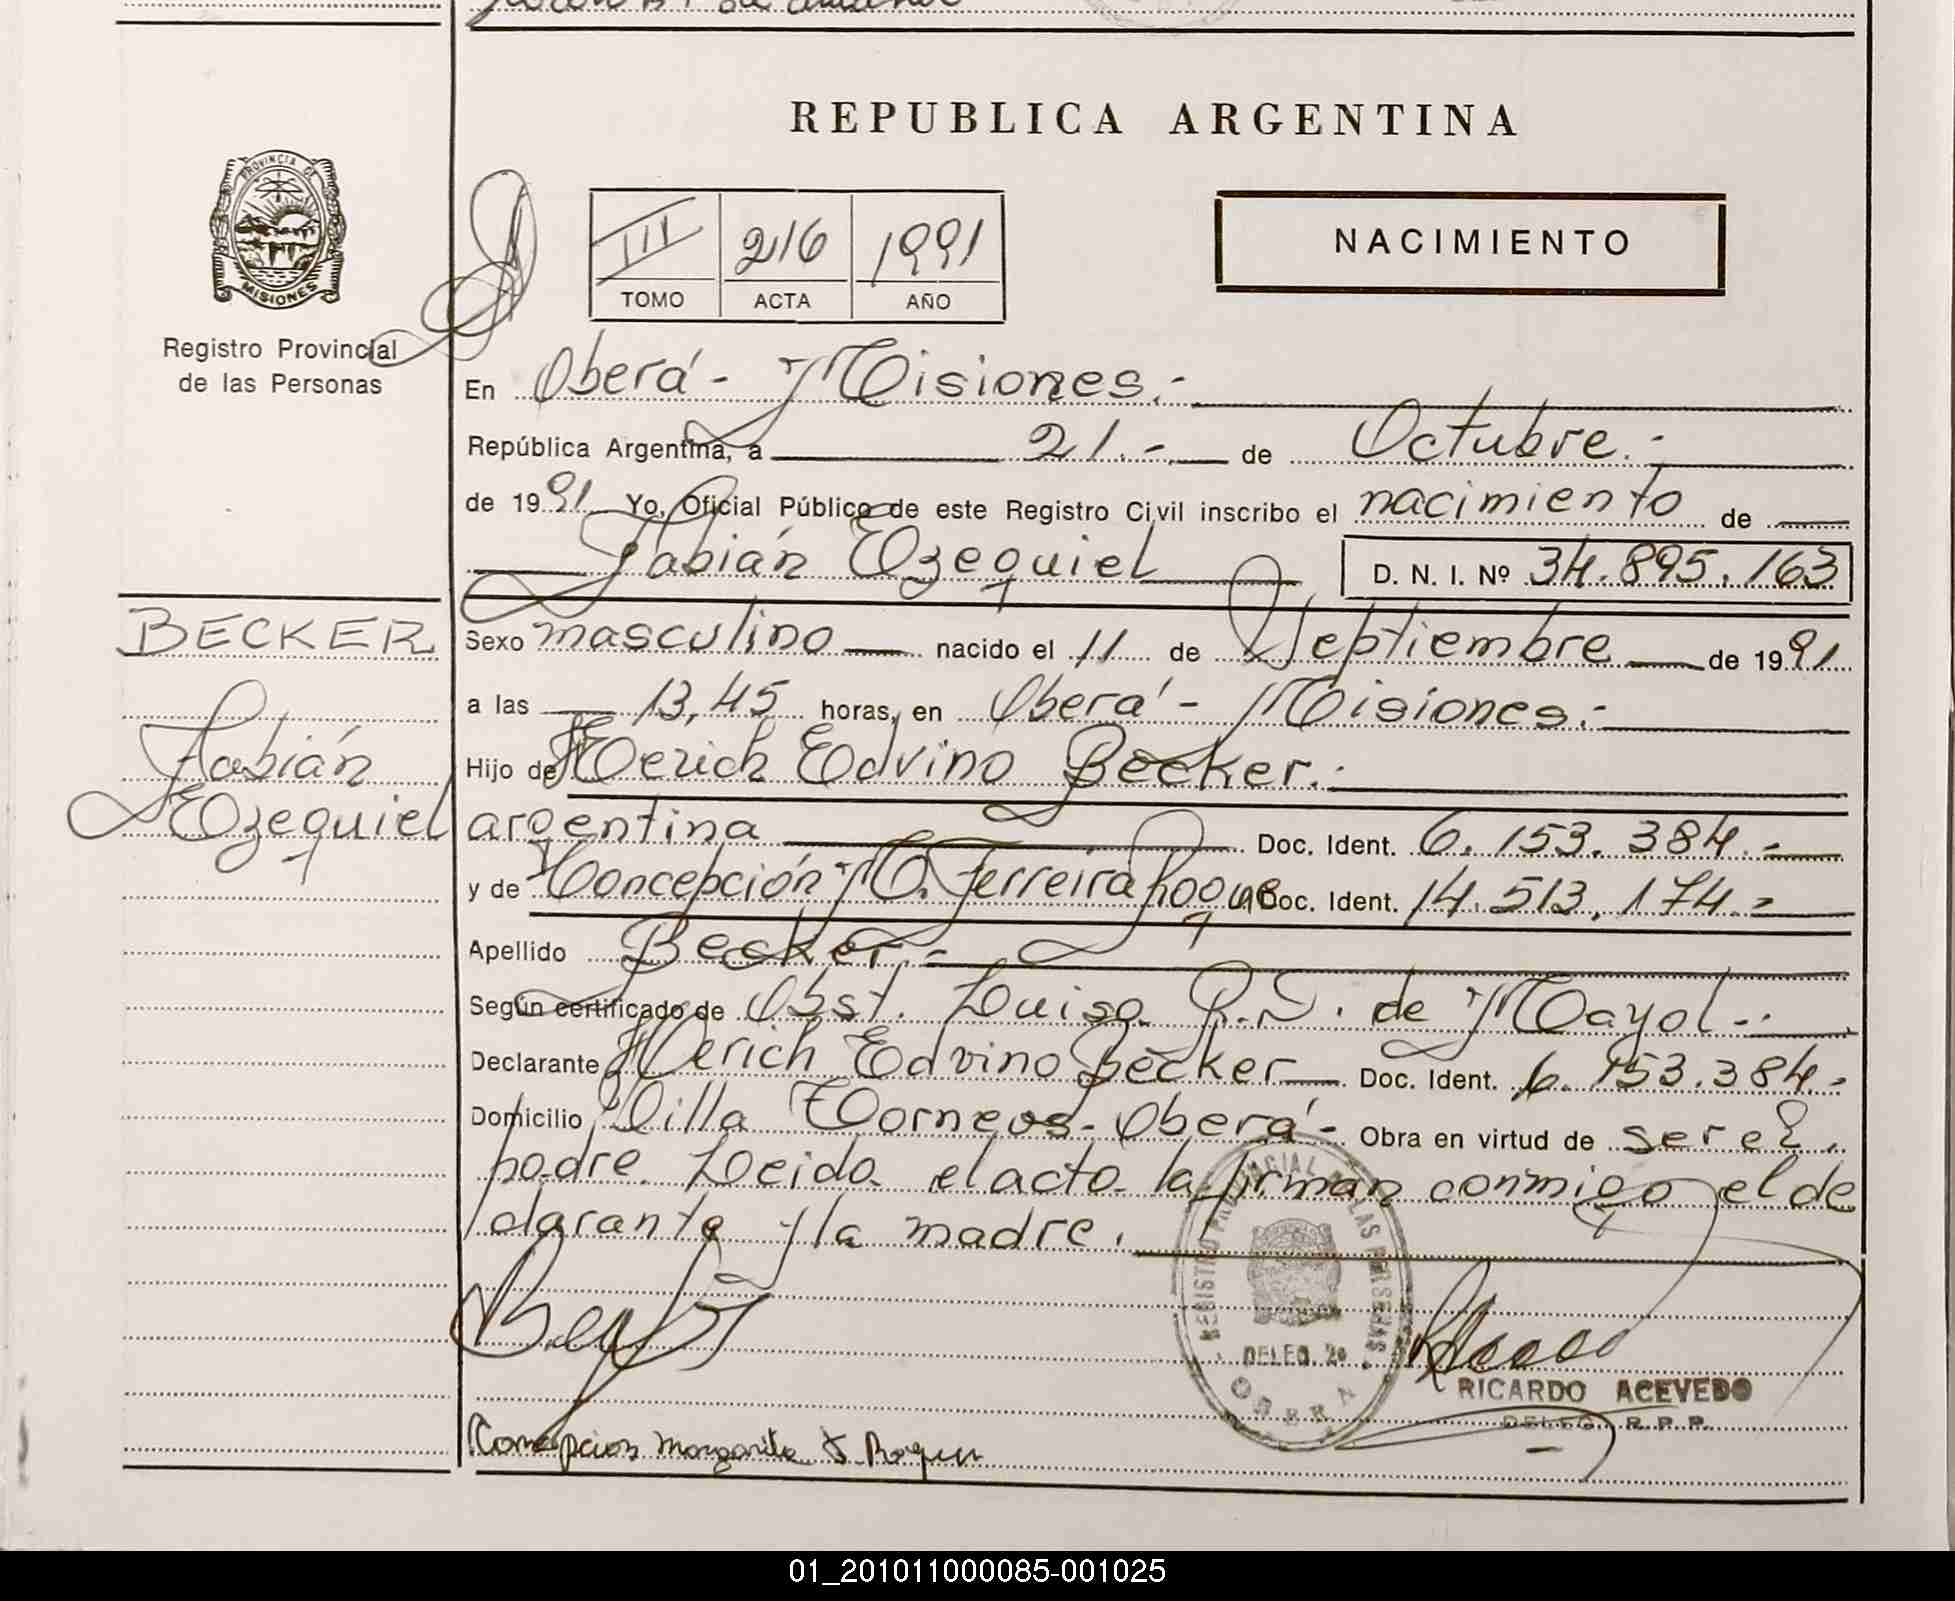 REPUBLICA ARGENTINA
PROVINCIA DE
MISIONES
Registro Provincial
de las Personas
III 216 1991
TOMO ACTA AÑO
NACIMIENTO
En Oberá - Misiones.-
República Argentina, a 21.- de Octubre.-
de 1991 Yo, Oficial Público de este Registro Civil inscribo el nacimiento de
Fabián Ezequiel D. N. I. Nº 34.895.163
BECKER
Fabián
Ezequiel
Sexo masculino nacido el 11 de Septiembre de 1991
a las 13,45 horas, en Oberá - Misiones.-
Hijo de Herich Edvino Becker.-
argentina Doc. Ident. 6.153.384.-
y de Concepción M. Ferreira Roque Doc. Ident. 14.513.174.-
Apellido Becker.-
Según certificado de Obst. Luisa R. D. de Mayol.-
Declarante Herich Edvino Becker Doc. Ident. 6.153.384.-
Domicilio Villa Torneos - Oberá - Obra en virtud de ser el
padre. Leida el acta la firman conmigo el de
clarante y la madre.
REGISTRO PROVINCIAL DE LAS PERSONAS
DELEG. 2a
OBERA
RICARDO ACEVEDO
DELEG. R.P.P.
Concepcion Margarita F Roque
01_201011000085-001025